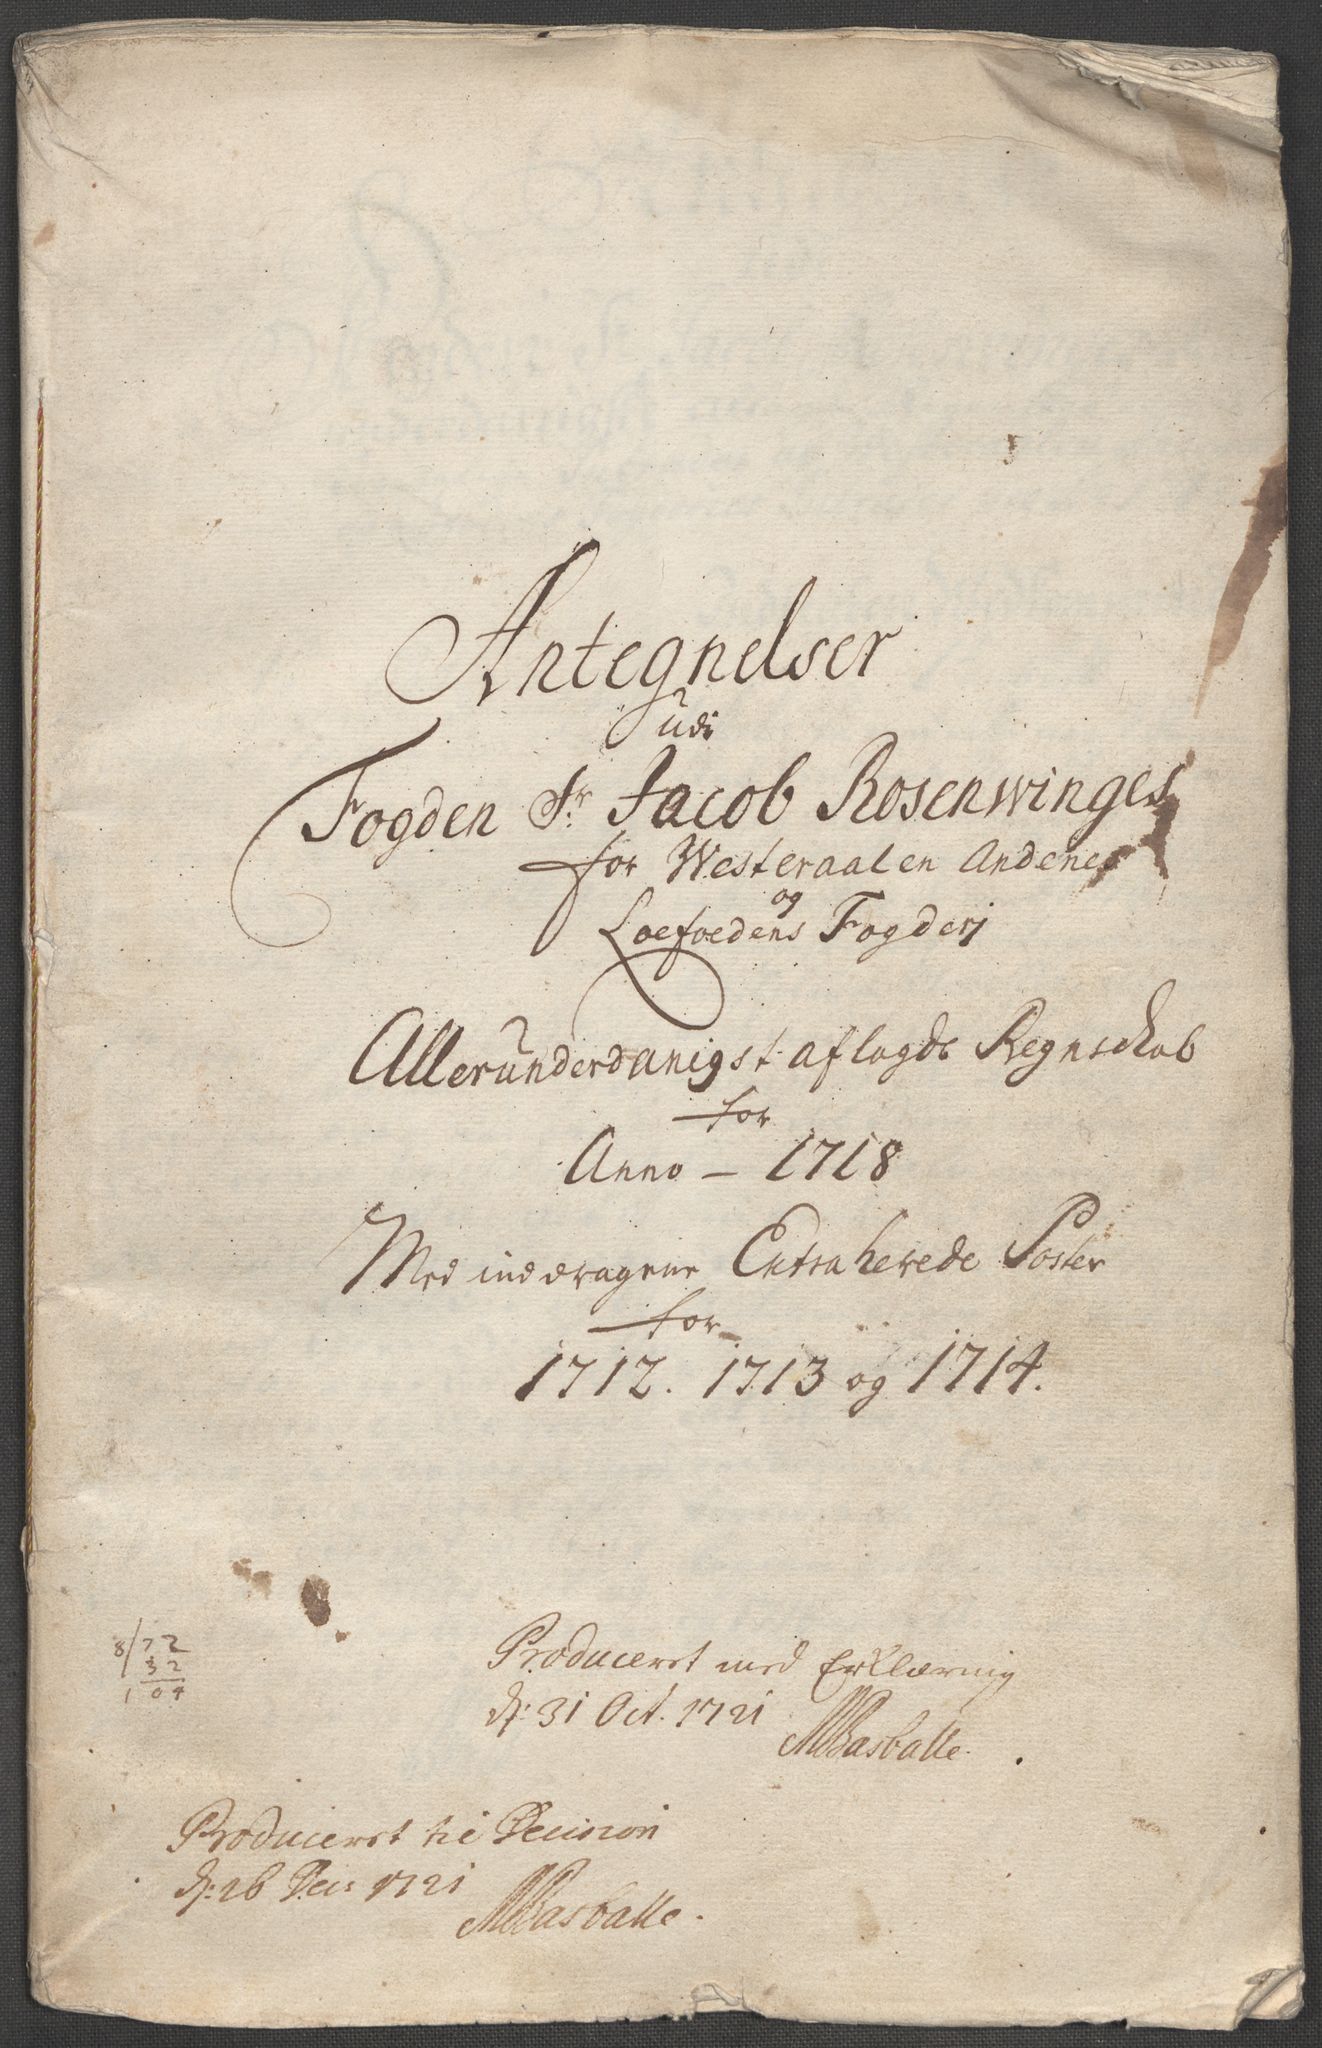 Antegnelser
udi
Fogden Sr. Jacob Rosenwinges
for Westeraalen Andenes
og
Loefoedens Fogderj
Allerunderdanigst aflagde Regnschab
for
Anno - 1718
Med inddragene Extraherede Poster
for
1712. 1713 og 1714.
8/72
32
104
Produceret med Erklæring
d: 31 Oct. 1721
MBasballe.
Produceret til Decision
d: 26 Dec: 1721
MBasballe.